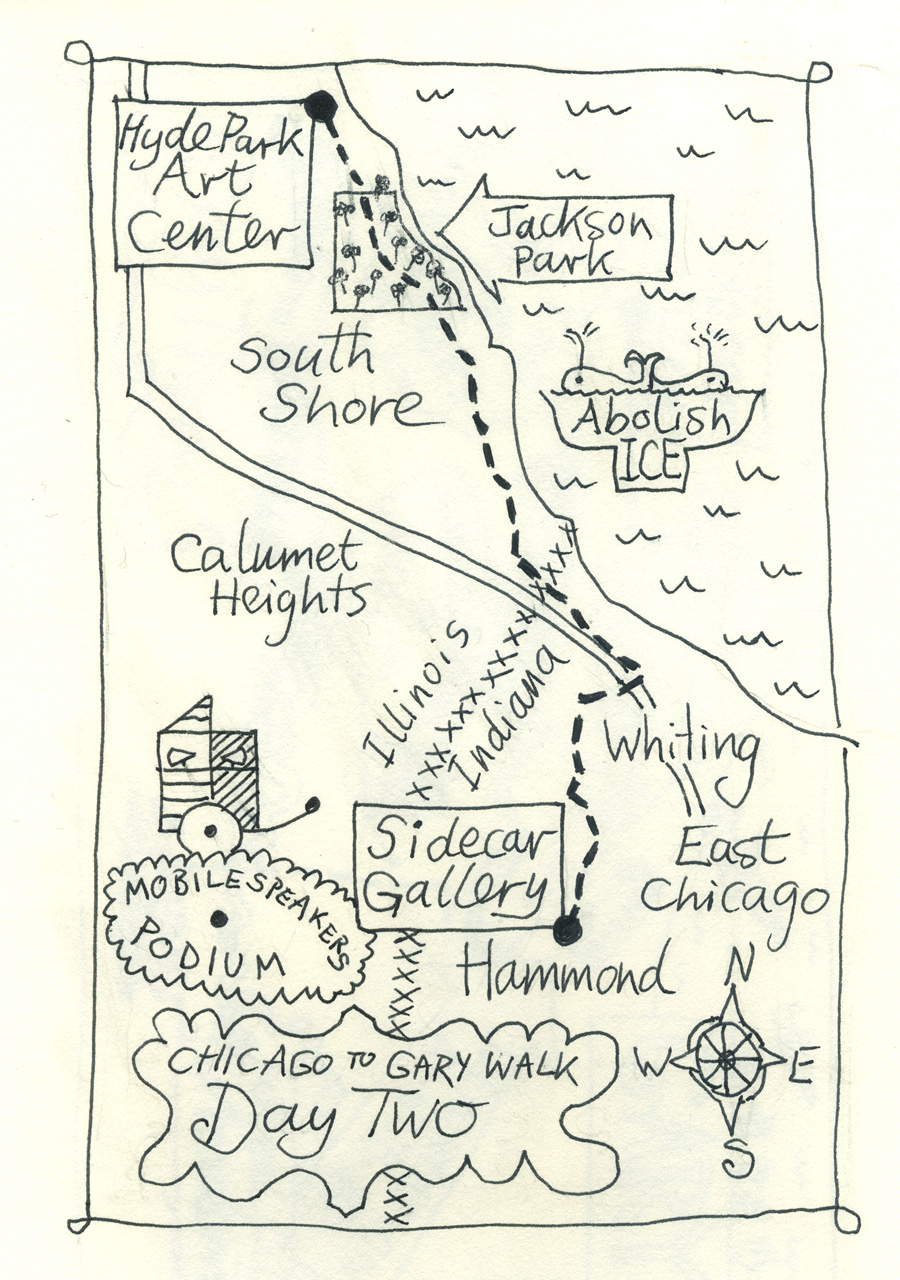 Hyde Park
Art
Center
Jackson
Park
South
Shore
Abolish
ICE
Calumet
Heights
Illinois
Indiana
Whiting
East
Chicago
Sidecar
Gallery
Hammond
MOBILE SPEAKERS
PODIUM
CHICAGO TO GARY WALK
Day Two
N
W
E
S